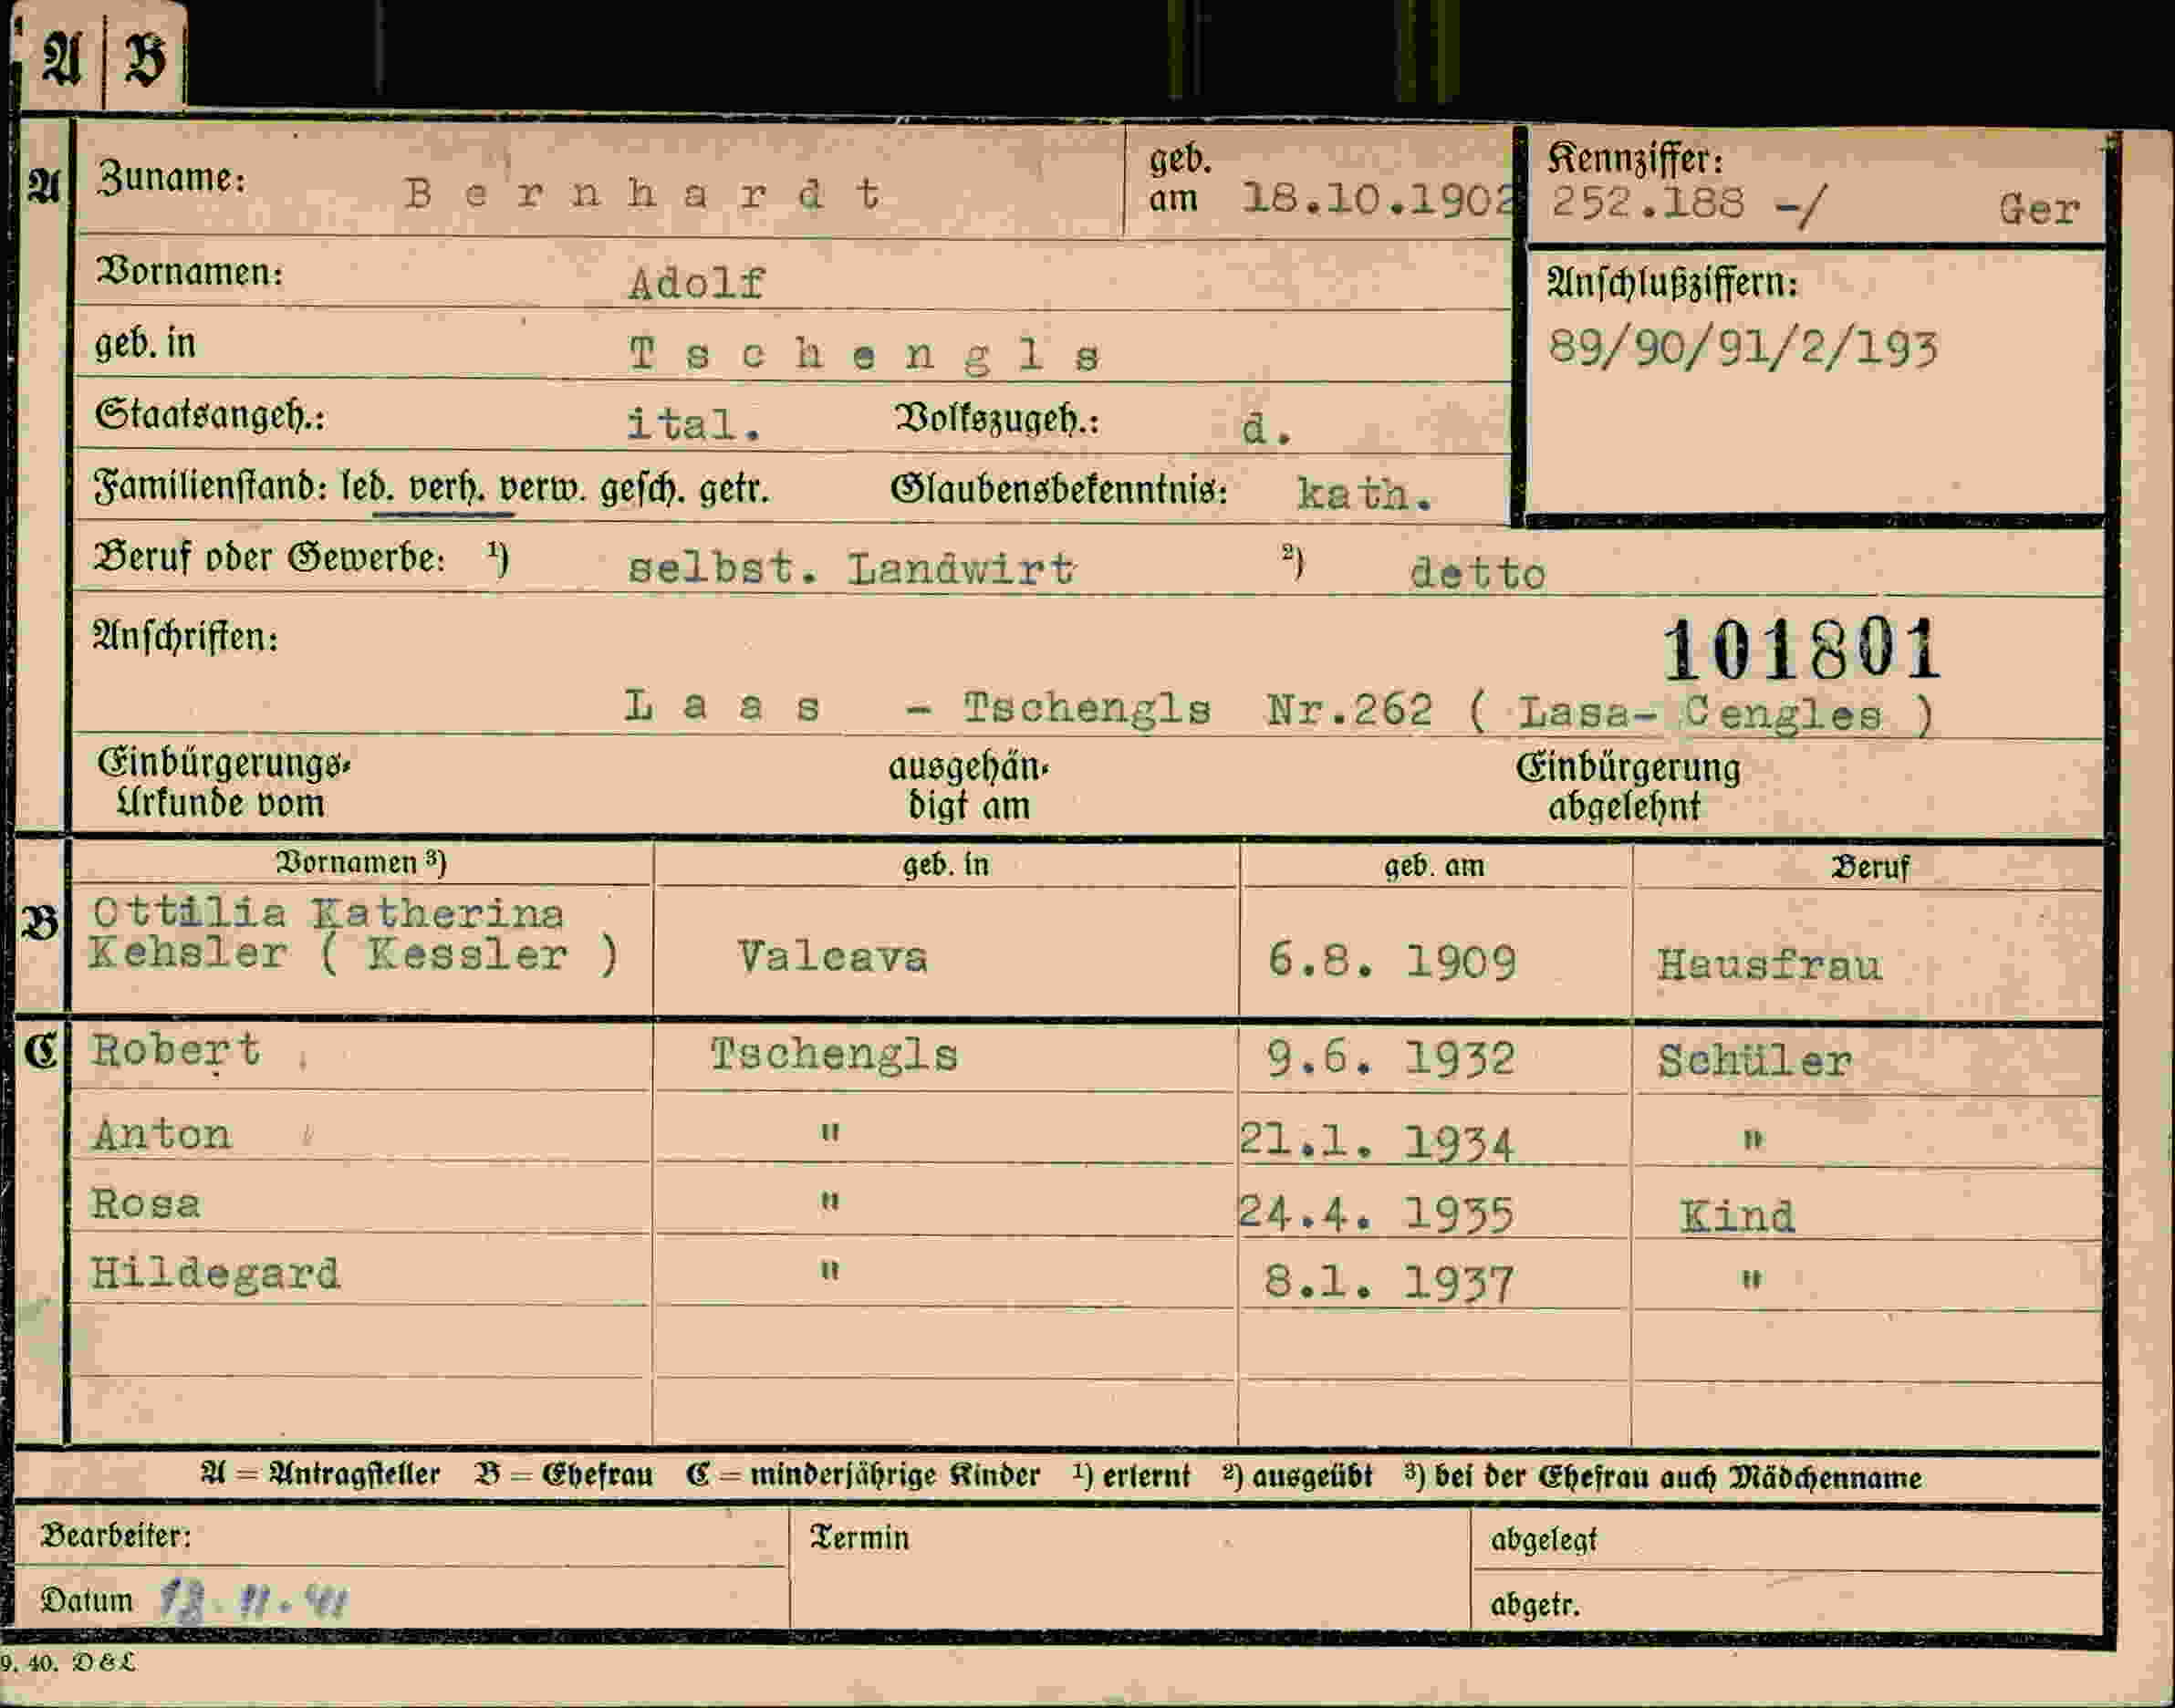 A B
A Zuname: Bernhardt geb. am 18.10.1902 Kennziffer: 252.188 -/ Ger
Vornamen: Adolf Anschlußziffern:
geb. in Tschengls 89/90/91/2/193
Staatsangeh.: ital. Volkszugeh.: d.
Familienstand: led. verh. verw. gesch. getr. Glaubensbekenntnis: kath.
Beruf oder Gewerbe: ¹) selbst. Landwirt ²) detto
Anschriften: 101801
Laas - Tschengls Nr.262 ( Lasa- Cengles )
Einbürgerungs- ausgehän- Einbürgerung
Urkunde vom digt am abgelehnt
Vornamen ³) geb. in geb. am Beruf
B Ottilia Katherina
Kehsler ( Kessler ) Valcava 6.8. 1909 Hausfrau
C Robert Tschengls 9.6. 1932 Schüler
Anton " 21.1. 1934 "
Rosa " 24.4. 1935 Kind
Hildegard " 8.1. 1937 "
A = Antragsteller B = Ehefrau C = minderjährige Kinder ¹) erlernt ²) ausgeübt ³) bei der Ehefrau auch Mädchenname
Bearbeiter: Termin abgelegt
Datum 18.11.41 abgetr.
9. 40. D & L